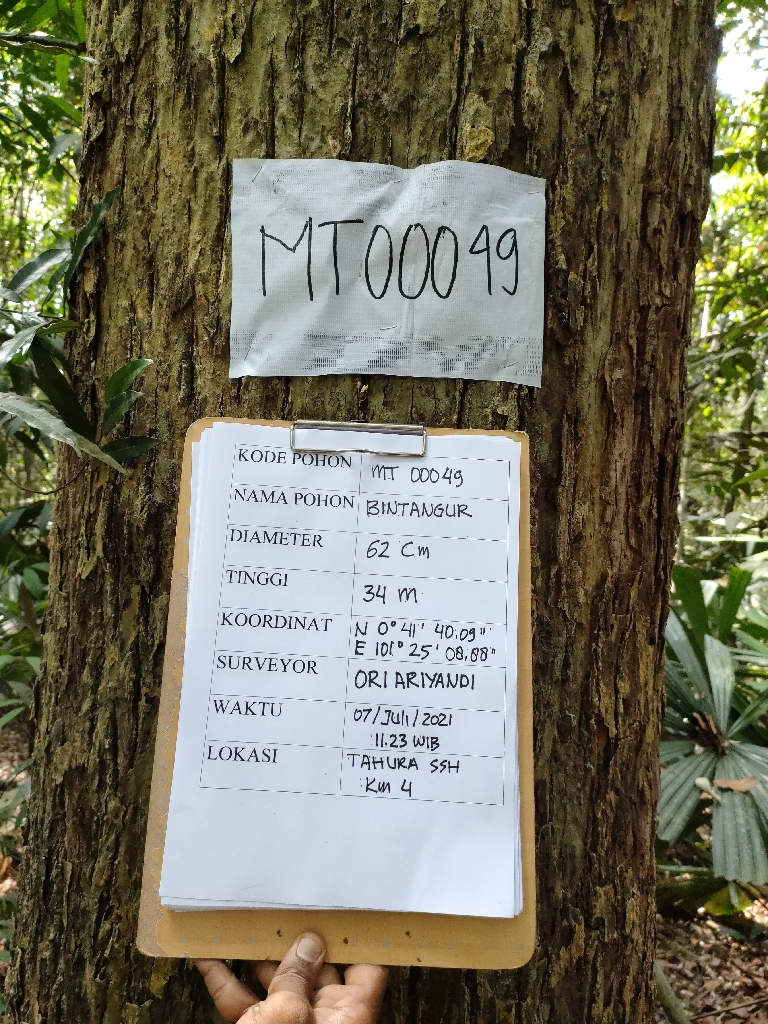 MT00049
KODE POHON MT 00049
NAMA POHON BINTANGUR
DIAMETER 62 Cm
TINGGI 34 m
KOORDINAT N 0° 41' 40.09"
E 101° 25' 08.88"
SURVEYOR ORI ARIYANDI
WAKTU 07/Juli/2021
11.23 WIB
LOKASI TAHURA SSH
Km 4